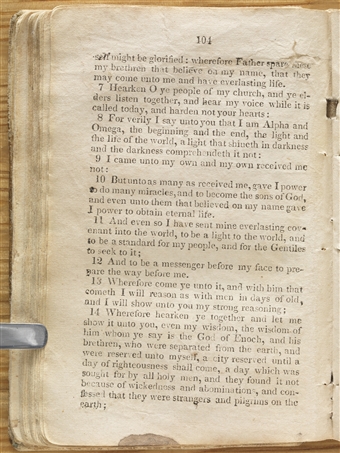 104
self might be glorified: wherefore Father spare these
my brethren that believe on my name, that they
may come unto me and have everlasting life.
7 Hearken O ye people of my church, and ye el-
ders listen together, and hear my voice while it is
called today, and harden not your hearts:
8 For verily I say unto you that I am Alpha and
Omega, the beginning and the end, the light and
the life of the world, a light that shineth in darkness
and the darkness comprehendeth it not:
9 I came unto my own and my own received me
not:
10 But unto as many as received me, gave I power
to do many miracles, and to become the sons of God,
and even unto them that believed on my name gave
I power to obtain eternal life.
11 And even so I have sent mine everlasting cov-
enant into the world, to be a light to the world, and
to be a standard for my people, and for the Gentiles
to seek to it;
12 And to be a messenger before my face to pre-
pare the way before me.
13 Wherefore come ye unto it, and with him that
cometh I will reason as with men in days of old,
and I will show unto you my strong reasoning;
14 Wherefore hearken ye together and let me
show it unto you, even my wisdom, the wisdom of
him whom ye say is the God of Enoch, and his
brethren, who were separated from the earth, and
were reserved unto myself, a city reserved until a
day of righteousness shall come, a day which was
sought for by all holy men, and they found it not
because of wickedness and abominations, and con-
fessed that they were strangers and pilgrims on the
earth;